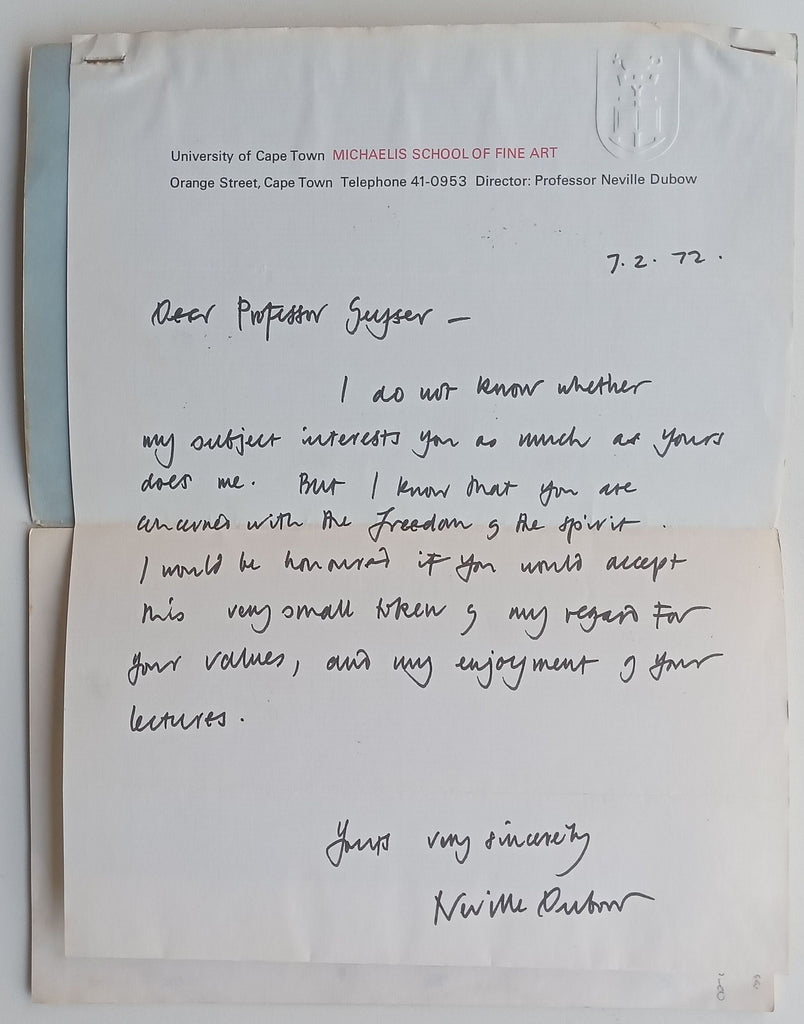 University of Cape Town MICHAELIS SCHOOL OF FINE ART
Orange Street, Cape Town Telephone 41-0953 Director: Professor Neville Dubow
7. 2. 72.
Dear Professor Geyser —
I do not know whether
my subject interests you as much as yours
does me. But I know that you are
concerned with the freedom of the spirit.
I would be honoured if you would accept
this very small token of my regard for
your values, and my enjoyment of your
lectures.
Yours very sincerely
Neville Dubow